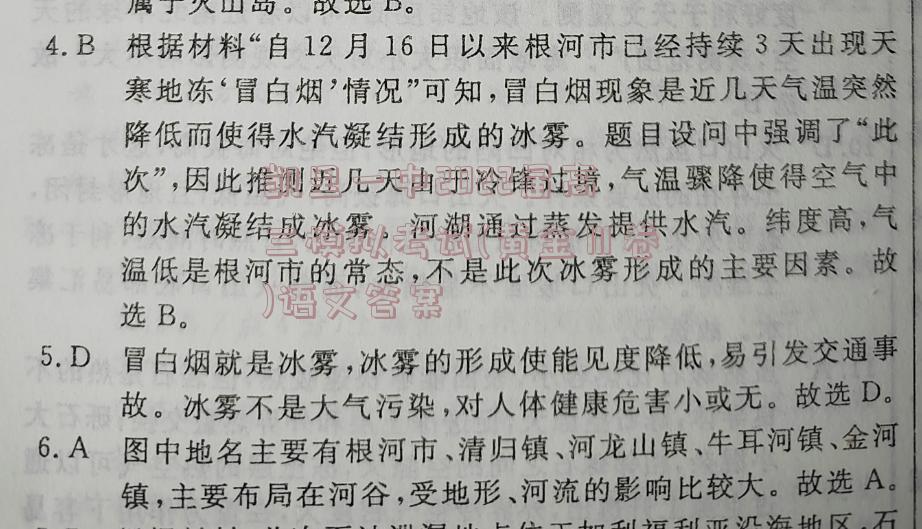 属于火山岛。故选B。
4.B 根据材料“自12月16日以来根河市已经持续3天出现天
寒地冻‘冒白烟’情况”可知,冒白烟现象是近几天气温突然
降低而使得水汽凝结形成的冰雾。题目设问中强调了“此
次”,因此推测近几天由于冷锋过境,气温骤降使得空气中
的水汽凝结成冰雾,河湖通过蒸发提供水汽。纬度高,气
温低是根河市的常态,不是此次冰雾形成的主要因素。故
选B。
5.D 冒白烟就是冰雾,冰雾的形成使能见度降低,易引发交通事
故。冰雾不是大气污染,对人体健康危害小或无。故选D。
6.A 图中地名主要有根河市、清归镇、河龙山镇、牛耳河镇、金河
镇,主要布局在河谷,受地形、河流的影响比较大。故选A。
凯里一中
三模拟考试(黄金Ⅲ卷
)语文答案